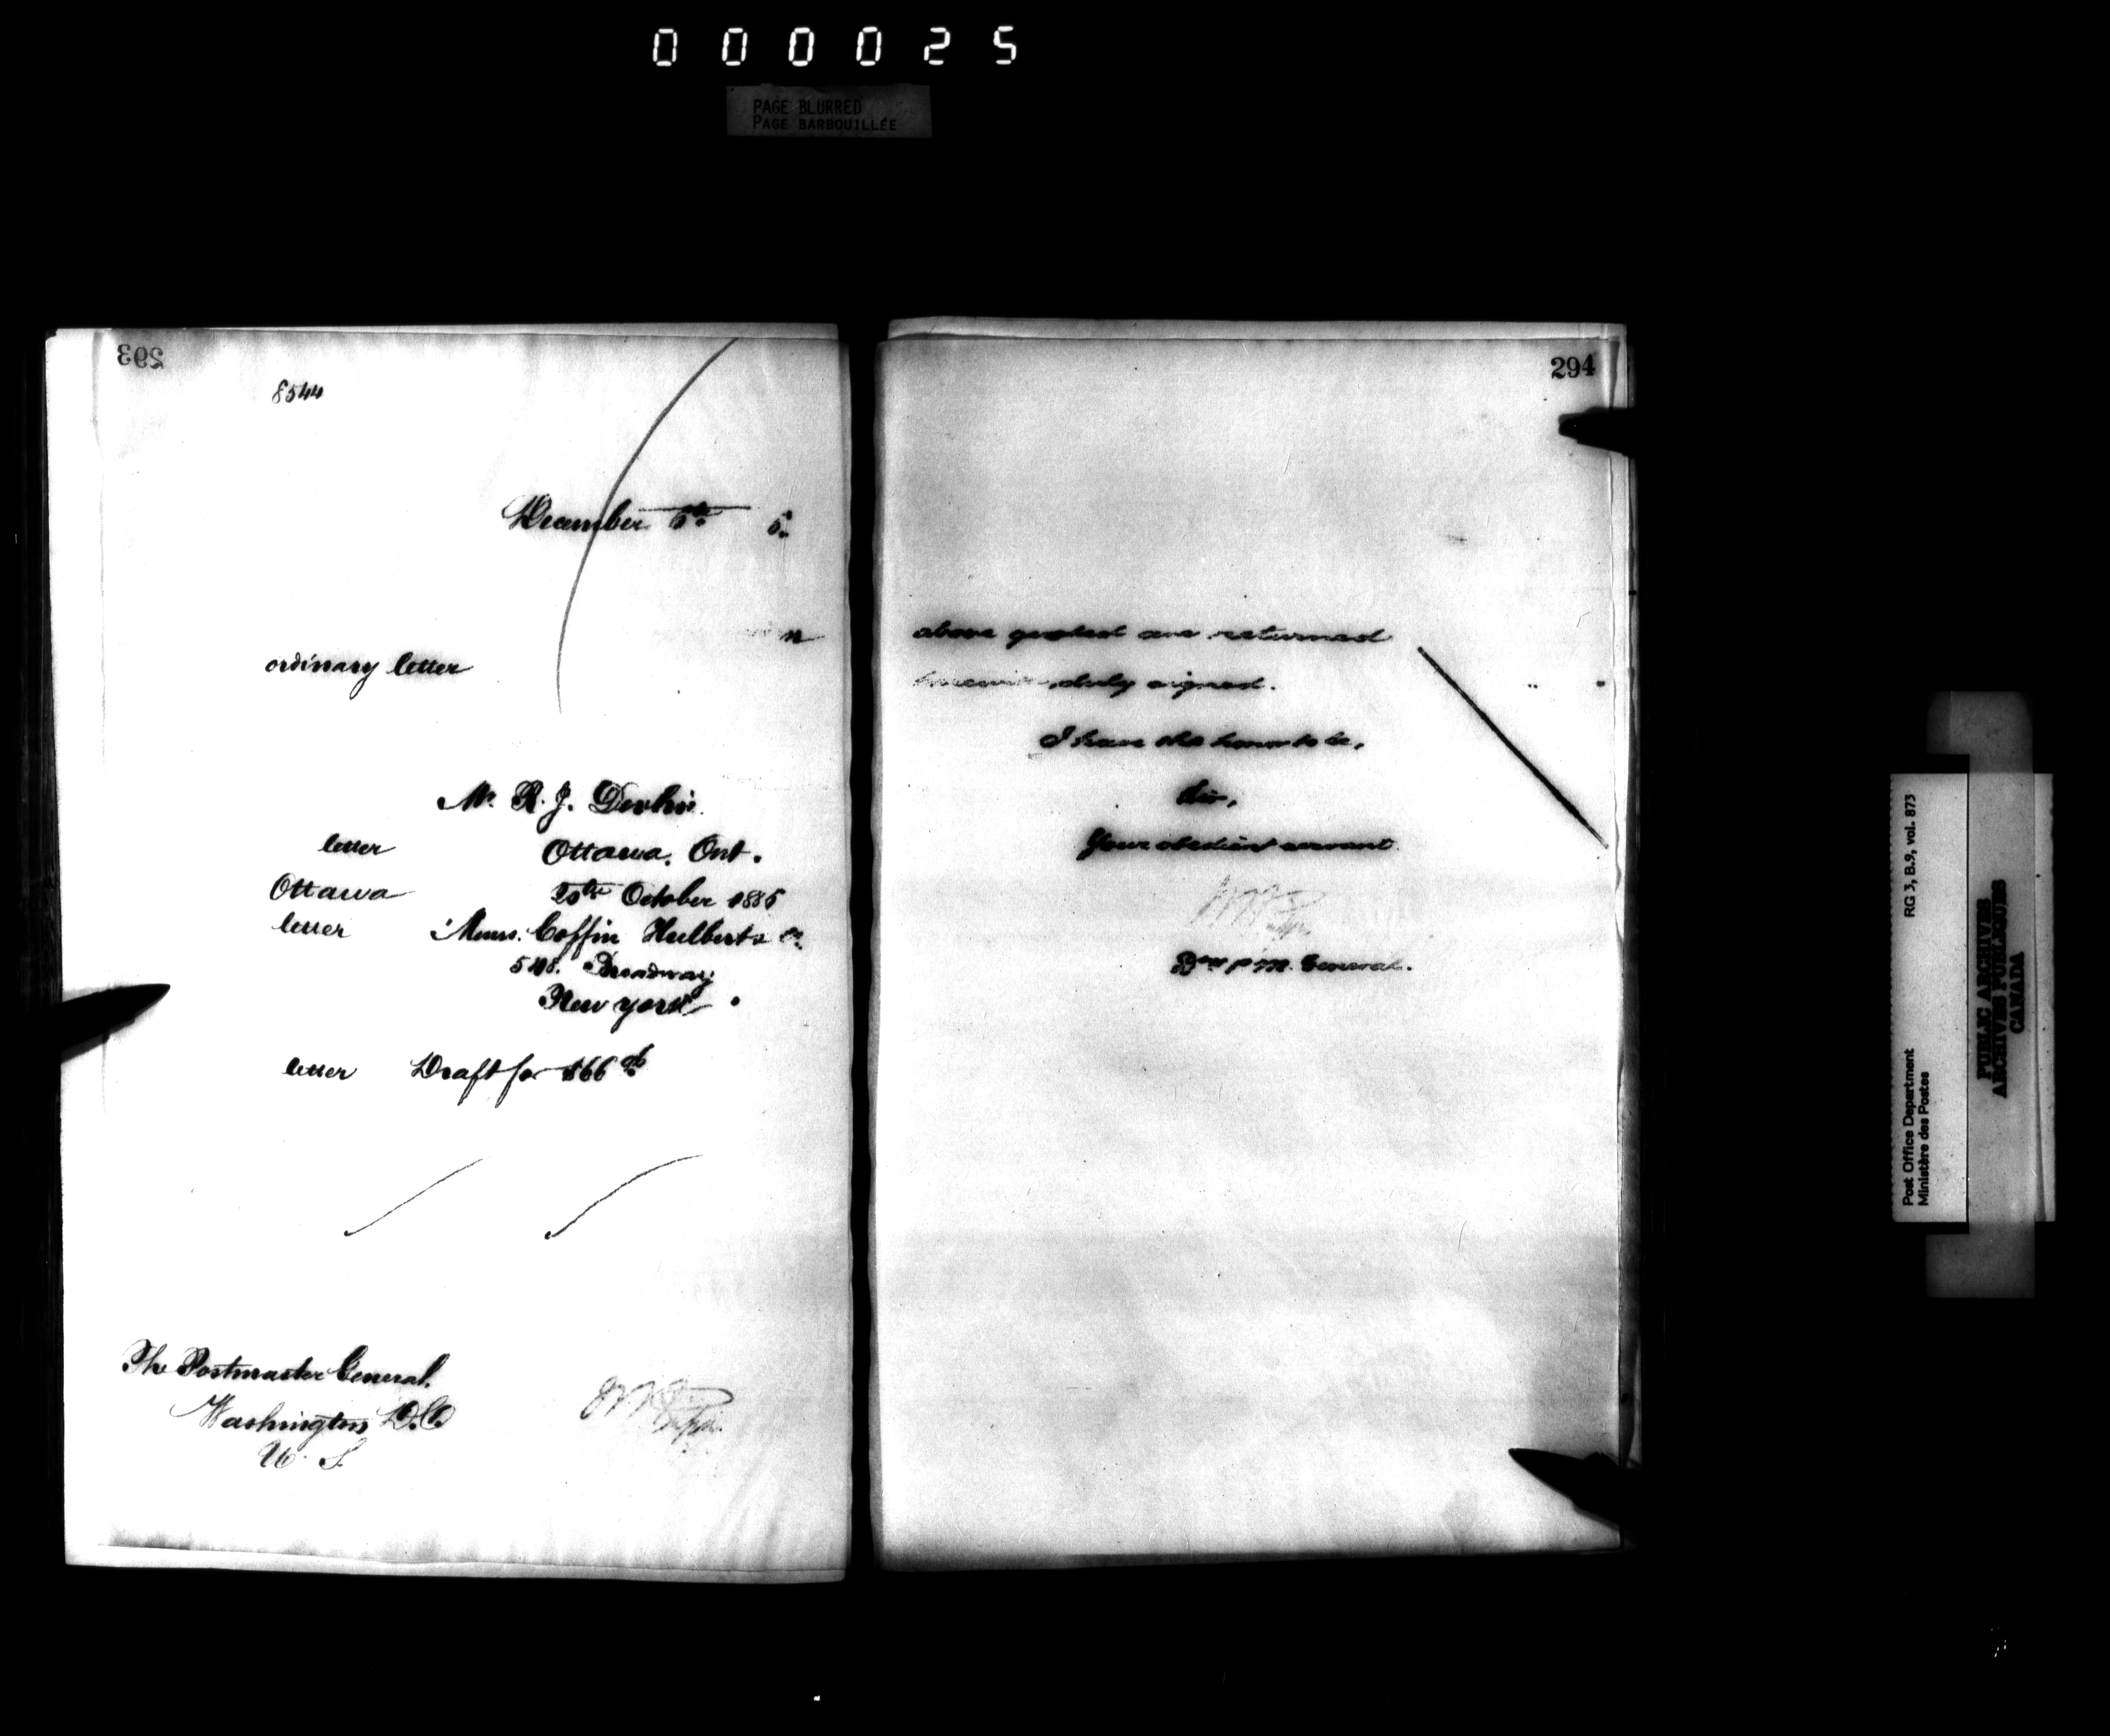 000025
PAGE BLURRED
PAGE BARBOUILLÉE
293
8544
December 5th 5.
n
ordinary letter
Mr. R. J. Devlin
letter Ottawa. Ont.
Ottawa 20th October 1885
letter Messrs. Coffin Hulbert & Co.
Broadway
New York
letter Draft for $66
The Postmaster General,
Washington, D.C.
U. S.
294
above quoted are returned
duly signed.
I have the honor to be,
Sir,
Your obedient servant
P.M. General.
Post Office Department
Ministère des Postes
RG 3, B.9, vol. 873
PUBLIC ARCHIVES
ARCHIVES PUBLIQUES
CANADA